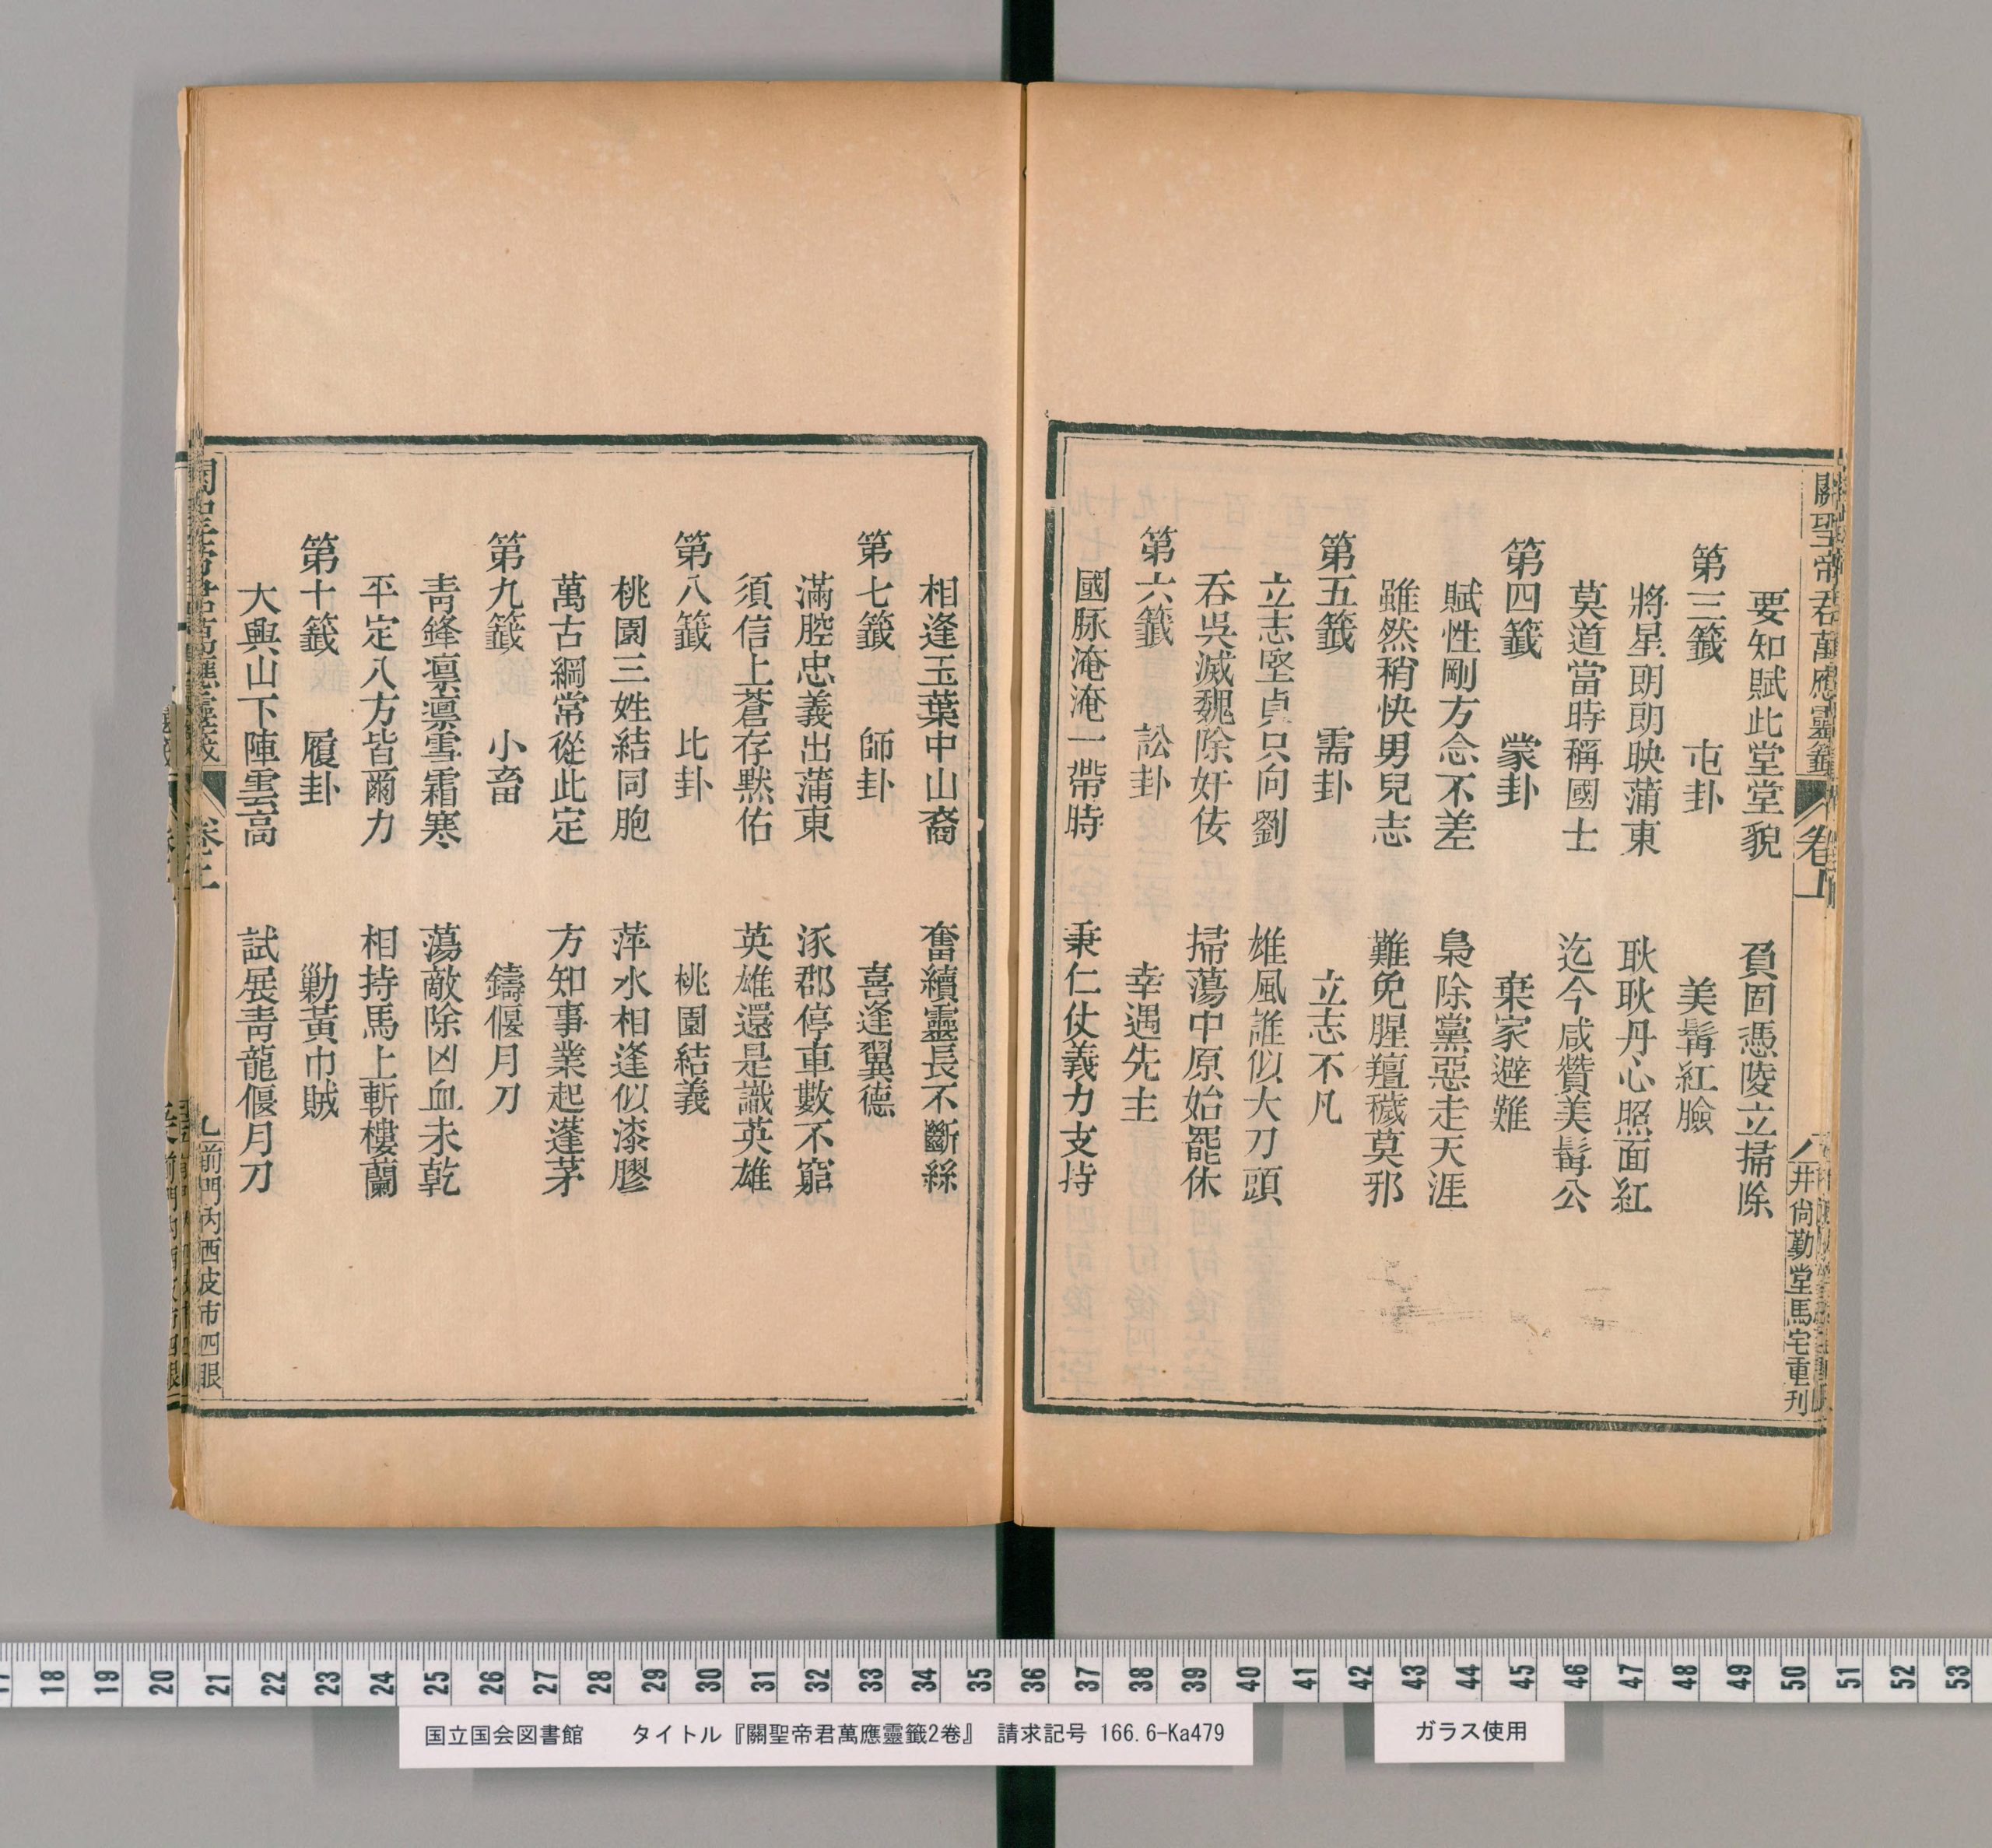 關聖帝君萬應靈籤 卷上 八 井尙勤堂馬宅重刊
要知賦此堂堂貌 負固憑陵立掃除
第三籤 屯卦 美髯紅臉
將星朗朗映蒲東 耿耿丹心照面紅
莫道當時稱國士 迄今咸贊美髯公
第四籤 蒙卦 棄家避難
賦性剛方念不差 梟除黨惡走天涯
雖然稍快男兒志 難免腥羶穢莫邪
第五籤 需卦 立志不凡
立志堅貞只向劉 雄風誰似大刀頭
吞吳滅魏除奸佞 掃蕩中原始罷休
第六籤 訟卦 幸遇先主
國脉淹淹一帶時 秉仁仗義力支持
相逢玉葉中山裔 奮續靈長不斷絲
第七籤 師卦 喜逢翼德
滿腔忠義出蒲東 涿郡停車數不窮
須信上蒼存默佑 英雄還是識英雄
第八籤 比卦 桃園結義
桃園三姓結同胞 萍水相逢似漆膠
萬古綱常從此定 方知事業起蓬茅
第九籤 小畜 鑄偃月刀
靑鋒凛凛雪霜寒 蕩敵除凶血未乾
平定八方皆爾力 相持馬上斬樓蘭
第十籤 履卦 勦黃巾賊
大興山下陣雲高 試展靑龍偃月刀
關聖帝君萬應靈籤 卷上 九 前門內西皮市四眼
17 18 19 20 21 22 23 24 25 26 27 28 29 30 31 32 33 34 35 36 37 38 39 40 41 42 43 44 45 46 47 48 49 50 51 52 53
国立国会図書館 タイトル『關聖帝君萬應靈籤2卷』 請求記号 166.6-Ka479
ガラス使用